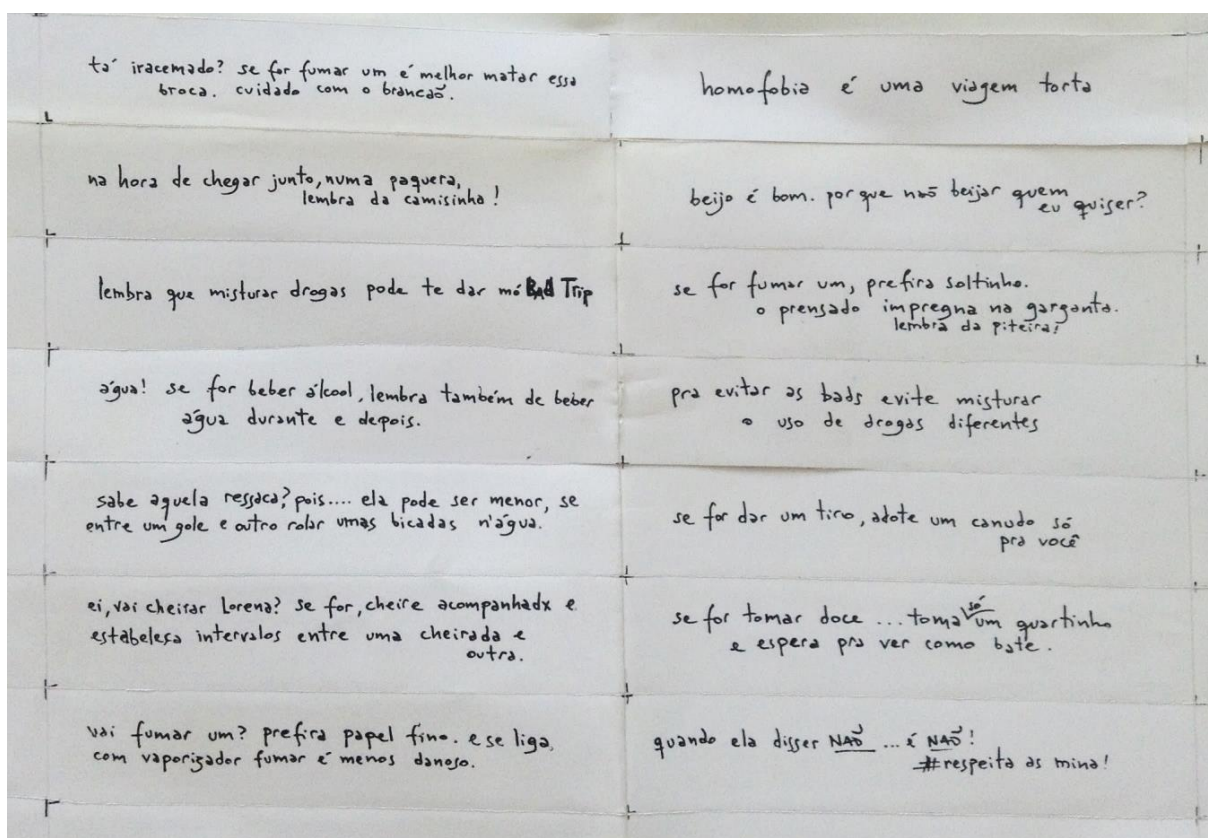 tá iracemado? se for fumar um é melhor matar essa
broca. cuidado com o brancão.
na hora de chegar junto, numa paquera,
lembra da camisinha!
lembra que misturar drogas pode te dar mó BAd Trip
água! se for beber álcool, lembra também de beber
água durante e depois.
sabe aquela ressaca? pois.... ela pode ser menor, se
entre um gole e outro rolar umas bicadas n'água.
ei, vai cheirar Lorena? se for, cheire acompanhadx e
estabelesa intervalos entre uma cheirada e
outra.
vai fumar um? prefira papel fino. e se liga,
com vaporizador fumar é menos danoso.
homofobia é uma viagem torta
beijo é bom. por que não beijar quem
eu quiser?
se for fumar um, prefira soltinho.
o prensado impregna na garganta.
lembra da piteira!
pra evitar as bads evite misturar
o uso de drogas diferentes
se for dar um tiro, adote um canudo só
pra você
se for tomar doce ... toma só um quartinho
e espera pra ver como bate.
quando ela disser NÃO ... é NÃO!
#respeita as mina!